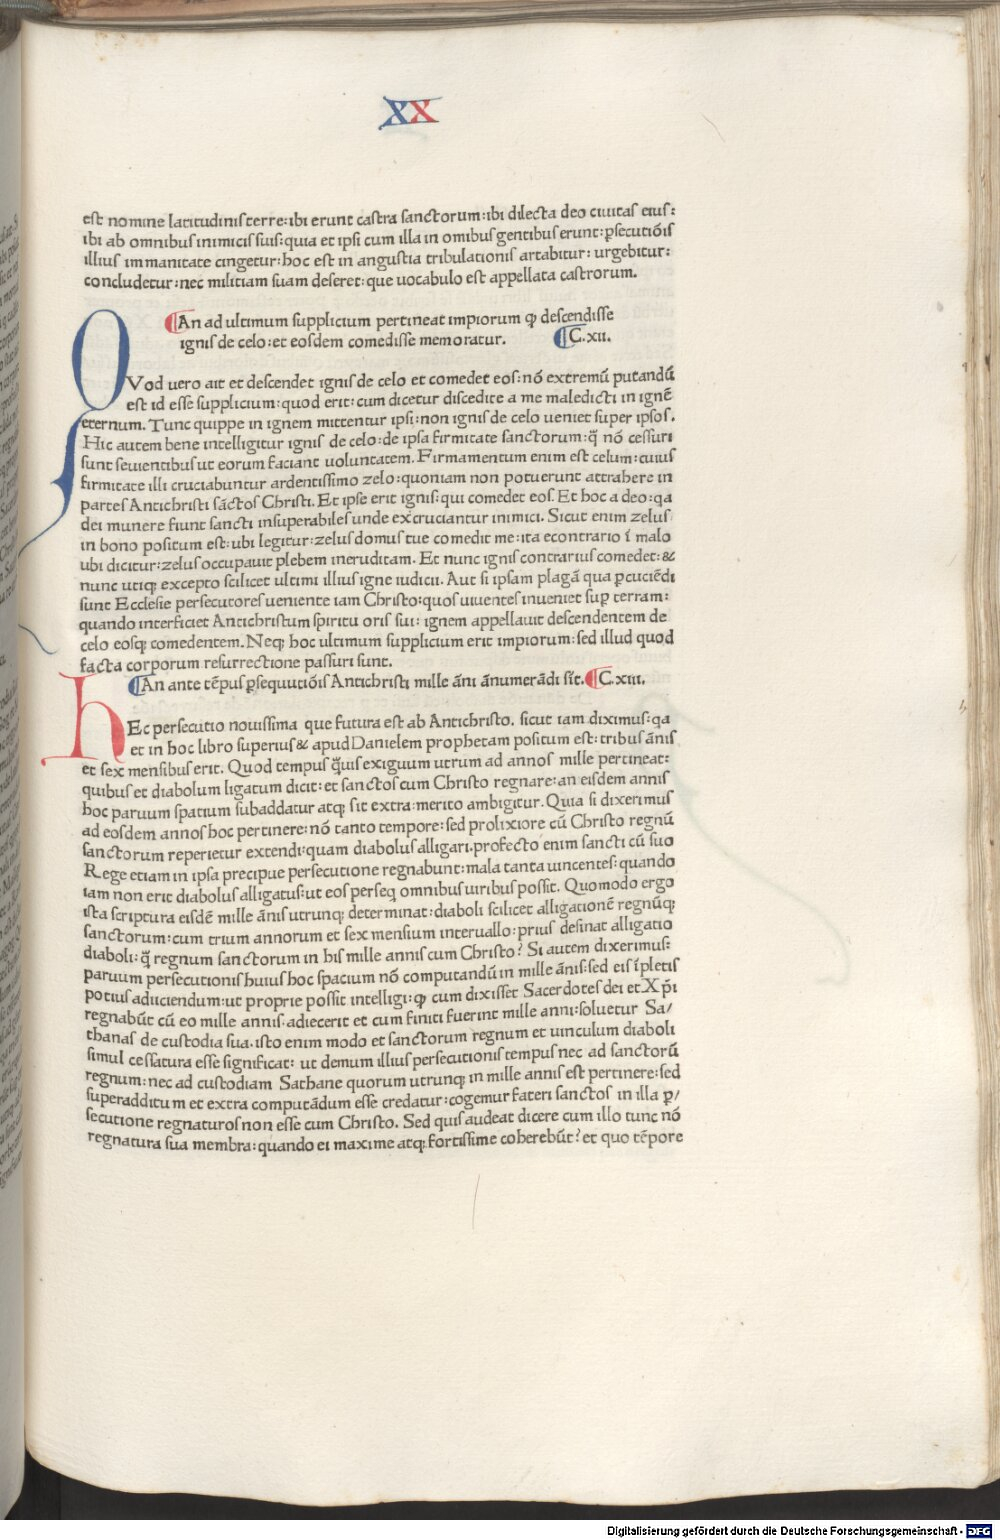 XX
est nomine latitudinis terre: ibi erunt castra sanctorum: ibi dilecta deo ciuitas eius:
ibi ab omnibus inimicis suis: quia et ipsi cum illa in omibus gentibus erunt: ꝑsecutiōis
illius immanitate cingetur: hoc est in angustia tribulationis artabitur: urgebitur:
concludetur: nec militiam suam deseret: que uocabulo est appellata castrorum.
¶An ad ultimum supplicium pertineat impiorum ꝙ descendisse
ignis de celo: et eosdem comedisse memoratur. ¶C.xii.
QVod uero ait et descendet ignis de celo et comedet eos: nō extremū putandū
est id esse supplicium: quod erit: cum dicetur discedite a me maledicti in ignē
eternum. Tunc quippe in ignem mittentur ipsi: non ignis de celo ueniet super ipsos.
Hic autem bene intelligitur ignis de celo: de ipsa firmitate sanctorum: q̄ nō cessuri
sunt seuientibus ut eorum faciant uoluntatem. Firmamentum enim est celum: cuius
firmitate illi cruciabuntur ardentissimo zelo: quoniam non potuerunt attrahere in
partes Antichristi sāctos Christi. Et ipse erit ignis: qui comedet eos. Et hoc a deo: qa
dei munere fiunt sancti insuperabiles unde excruciantur inimici. Sicut enim zelus
in bono positum est: ubi legitur: zelus domus tue comedit me: ita econtrario ī malo
ubi dicitur: zelus occupauit plebem ineruditam. Et nunc ignis contrarius comedet: &
nunc utiqꝫ excepto scilicet ultimi illius igne iudicii. Aut si ipsam plagā qua ꝑcuciēdi
sunt Ecclesie persecutores ueniente iam Christo: quos uiuentes inueniet suꝑ terram:
quando interficiet Antichristum spiritu oris sui: ignem appellauit descendentem de
celo eosqꝫ comedentem. Neqꝫ hoc ultimum supplicium erit impiorum: sed illud quod
facta corporum resurrectione passuri sunt.
¶An ante tēpus ꝑsequutiōis Antichristi mille āni ānumerādi sīt. ¶C.xiii.
HEc persecutio nouissima que futura est ab Antichristo. sicut iam diximus: qa
et in hoc libro superius & apud Danielem prophetam positum est: tribus ānis
et sex mensibus erit. Quod tempus q̄uis exiguum utrum ad annos mille pertineat:
quibus et diabolum ligatum dicit: et sanctos cum Christo regnare: an eisdem annis
hoc paruum spatium subaddatur atqꝫ sit extra: merito ambigitur. Quia si dixerimus
ad eosdem annos hoc pertinere: nō tanto tempore: sed prolixiore cū Christo regnū
sanctorum reperietur extendi: quam diabolus alligari. profecto enim sancti cū suo
Rege etiam in ipsa precipue persecutione regnabunt: mala tanta uincentes: quando
iam non erit diabolus alligatus: ut eos perseqꝫ omnibus uiribus possit. Quomodo ergo
ista scriptura eisdē mille ānis utrunqꝫ determinat: diaboli scilicet alligationē regnūqꝫ
sanctorum: cum trium annorum et sex mensium interuallo: prius desinat alligatio
diaboli: q̄ regnum sanctorum in his mille annis cum Christo? Si autem dixerimus:
paruum persecutionis huius hoc spacium nō computandū in mille ānis: sed eis īpletis
potius adiiciendum: ut proprie possit intelligi: ꝙ cum dixisset Sacerdotes dei et Xp̄i
regnabūt cū eo mille annis. adiecerit et cum finiti fuerint mille anni: soluetur Sa/
thanas de custodia sua. isto enim modo et sanctorum regnum et uinculum diaboli
simul cessatura esse significat: ut demum illius persecutionis tempus nec ad sanctorū
regnum: nec ad custodiam Sathane quorum utrunqꝫ in mille annis est pertinere: sed
superadditum et extra computādum esse credatur: cogemur fateri sanctos in illa ꝑ/
secutione regnaturos non esse cum Christo. Sed quis audeat dicere cum illo tunc nō
regnatura sua membra: quando ei maxime atqꝫ fortissime coherebūt? et quo tēpore
Digitalisierung gefördert durch die Deutsche Forschungsgemeinschaft - DFG